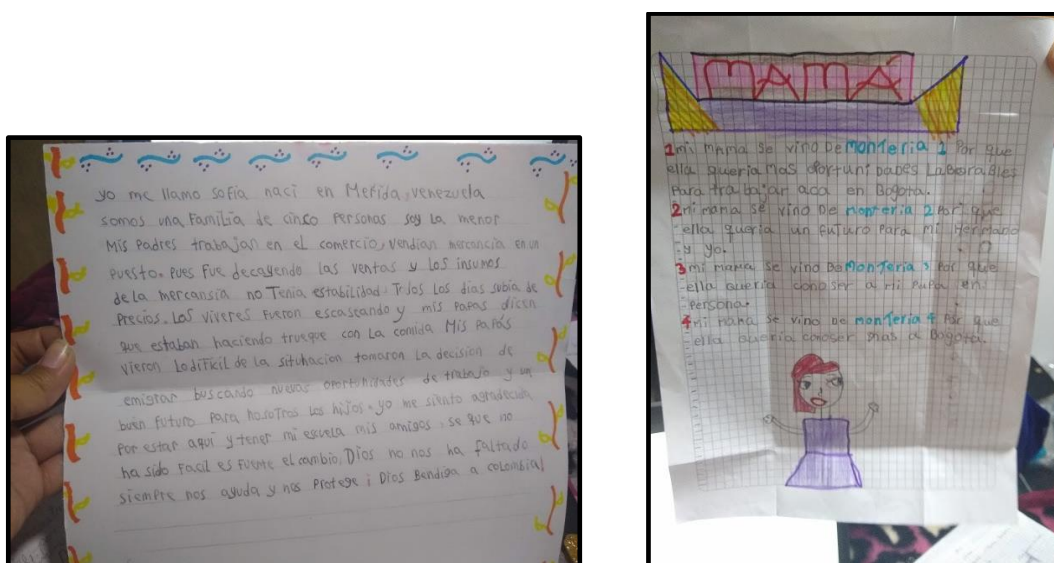 yo me llamo sofía, naci en Merida, venezuela
somos una Familia de cinco Personas soy La menor
Mis Padres trabajan en el comercio, vendian mercancia en un
puesto. pues Fue decayendo las ventas y Los insumos
de La mercansia no Tenia estabilidad. Todos Los dias subia de
Precios. Los viveres Fueron escaseando y mis Papas dicen
que estaban haciendo trueque con La comida Mis Papás
vieron Lo diFicil de La situhacion tomaron La decisión de
emigrar buscando nuevas oportunidades de trabajo y un
buen Futuro Para nosoTros Los hijos. yo me siento agradecida
Por estar aquí y tener mi escuela mis amigos, se que no
ha sido Facil es Fuerte el cambio, Dios no nos ha Faltado
siempre nos ayuda y nos Protege ¡ Dios Bendiga a colombia!
MAMÁ
1 mi mama se vino De monteria 1 Por que
ella queria mas oportuni Dades LaBoraBles
Para tra bajar aca en Bogota.
2 mi mama se vino De monteria 2 Por que
ella queria un Futuro Para mi Hermano
y yo.
3 mi mama se vino De monTeria 3 Por que
ella queria cono ser a mi PaPa en
Persona.
4 mi mama se vino De monTeria 4 Por que
ella queria conoser mas a Bogota.